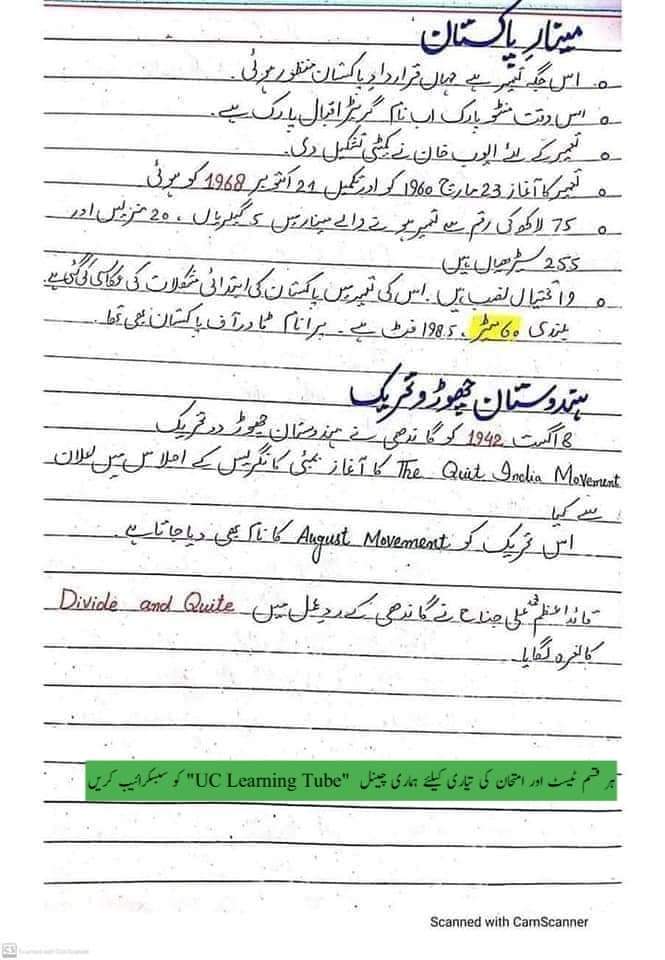 مینارِ پاکستان
o اس جگہ تعمیر ہے جہاں قراردادِ پاکستان منظور ہوئی.
o اس وقت منٹو پارک اب نام گریٹر اقبال پارک ہے.
o تعمیر کے لئے ایوب خان نے کمیٹی تشکیل دی.
o تعمیر کا آغاز 23 مارچ 1960 کو اور تکمیل 21 اکتوبر 1968 کو ہوئی
o 75 لاکھ کی رقم سے تعمیر ہونے والے مینار میں 5 گیلریاں ، 20 منزلیں اور
255 سیڑھیاں ہیں
o 19 تختیاں نصب ہیں . اس کی تعمیر میں پاکستان کی ابتدائی مشکلات کی عکاسی کی گئی ہے.
بلندی 60 میٹر ، 198.5 فٹ ہے ۔ پرانا نام ٹاور آف پاکستان بھی تھا .
ہندوستان چھوڑو تحریک
8 اگست 1942 کو گاندھی نے ہندوستان چھوڑ دو تحریک
The Quit India Movement کا آغاز بمبئی کانگریس کے اجلاس میں اعلان
سے کیا
اس تحریک کو August Movement کا نام بھی دیا جاتا ہے.
قائد اعظم محمد علی جناح نے گاندھی کے ردِ عمل میں Divide and Quite
کا نعرہ لگایا.
ہر قسم ٹیسٹ اور امتحان کی تیاری کیلئے ہماری چینل "UC Learning Tube" کو سبسکرائیب کریں
Scanned with CamScanner
CS Scanned with CamScanner